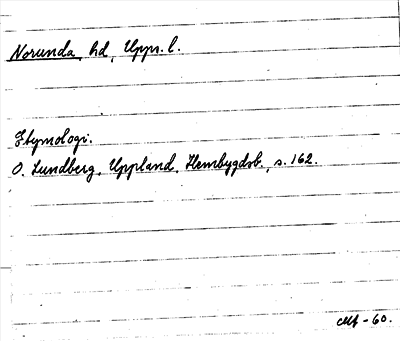 Norunda, hd, Upps. l.
Etymologi.
O. Lundberg, Uppland, Hembygdsb., s. 162.
- 60.